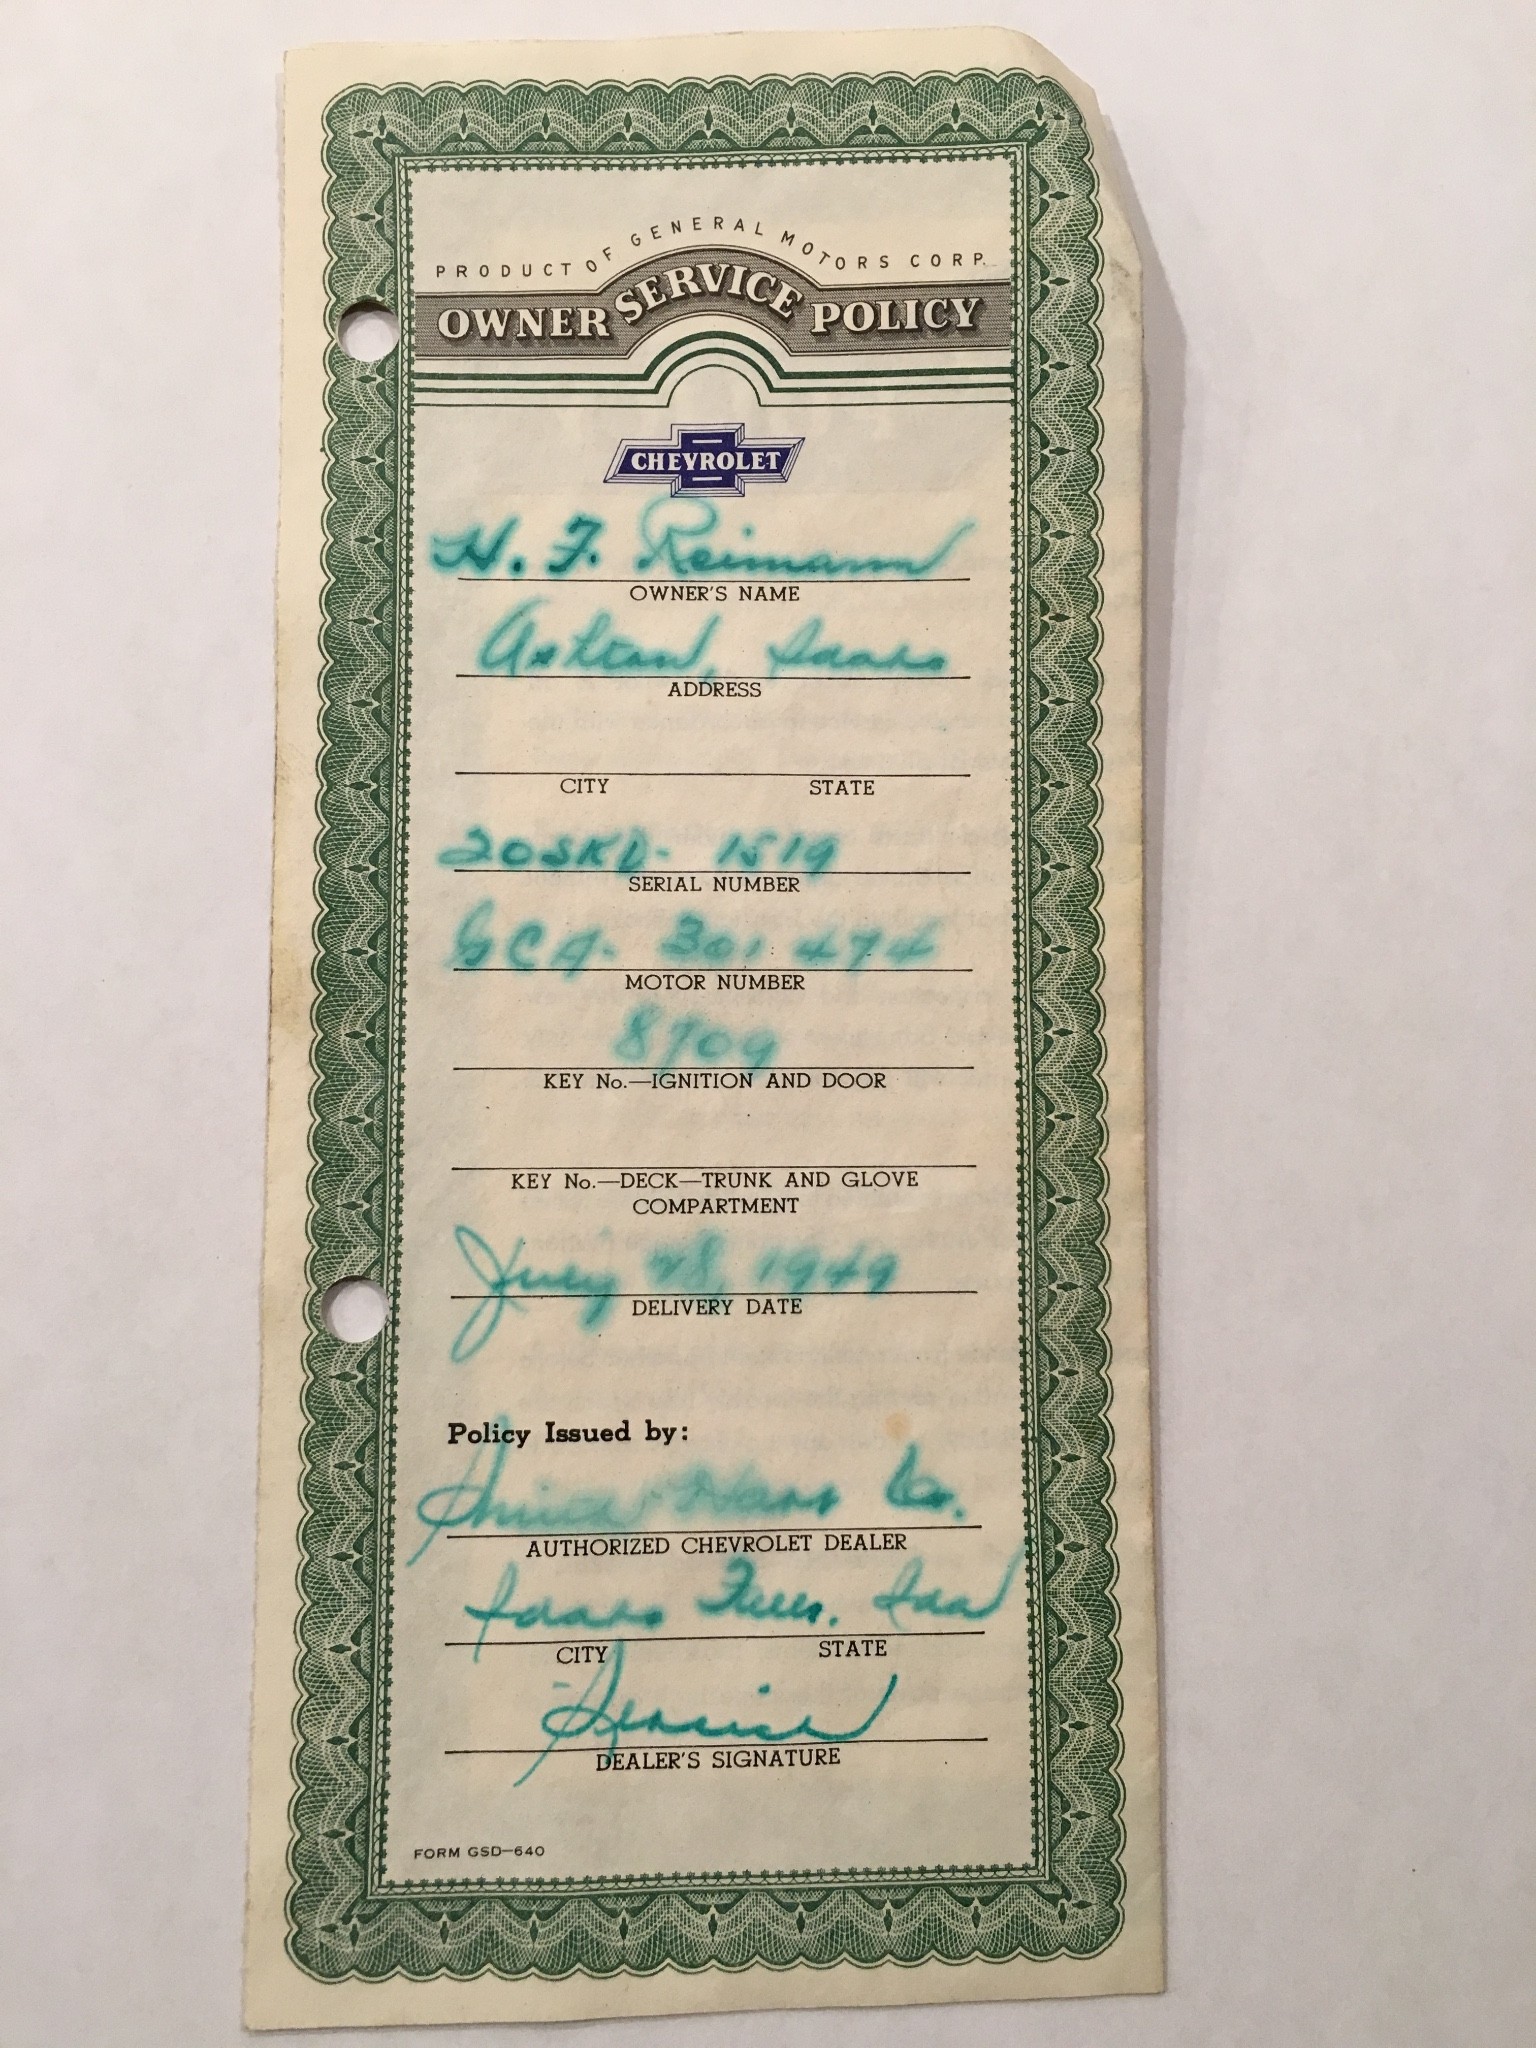 PRODUCT OF GENERAL MOTORS CORP.
OWNER SERVICE POLICY
CHEVROLET
H. F. Reimann
OWNER'S NAME
Ashton, Idaho
ADDRESS
CITY STATE
20SKD- 1519
SERIAL NUMBER
GCA- 301474
MOTOR NUMBER
8709
KEY No.—IGNITION AND DOOR
KEY No.—DECK—TRUNK AND GLOVE
COMPARTMENT
July 28, 1949
DELIVERY DATE
Policy Issued by:
Smith Hart Co.
AUTHORIZED CHEVROLET DEALER
Idaho Falls, Ida
CITY STATE
DEALER'S SIGNATURE
FORM GSD—640